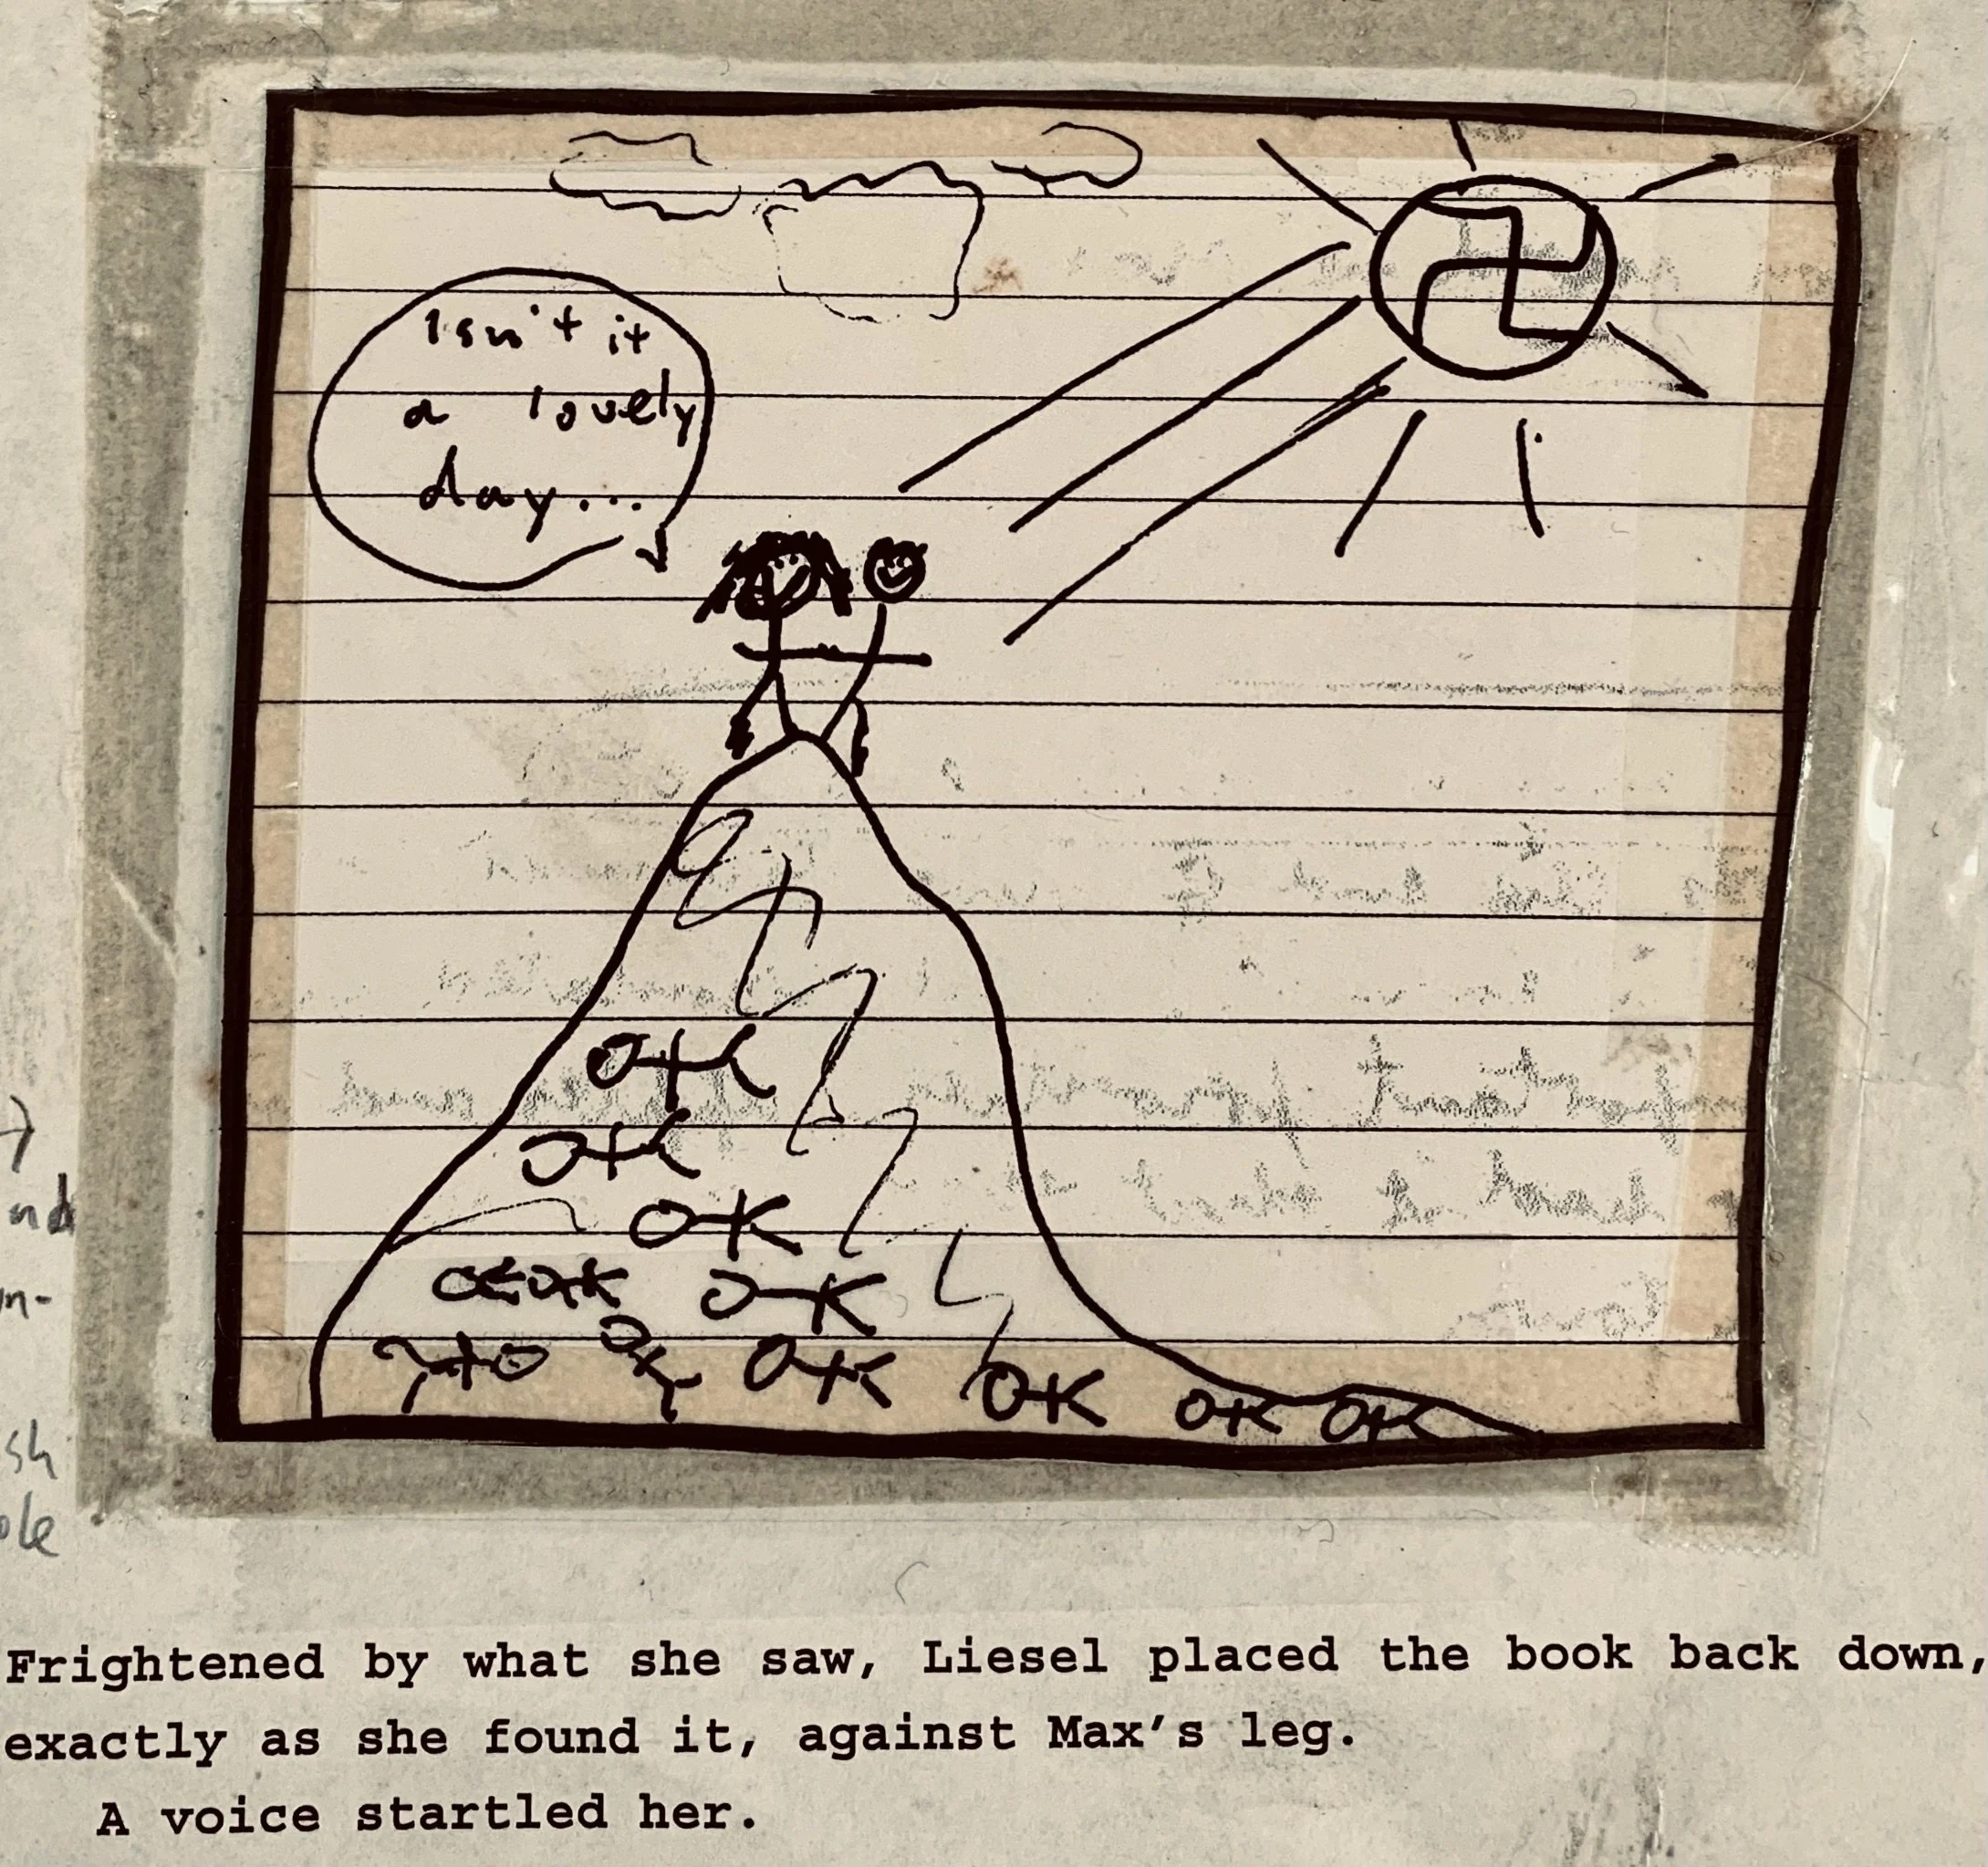 Isn't it
a lovely
day...
nd
n-
sh
ole
Frightened by what she saw, Liesel placed the book back down,
exactly as she found it, against Max's leg.
A voice startled her.